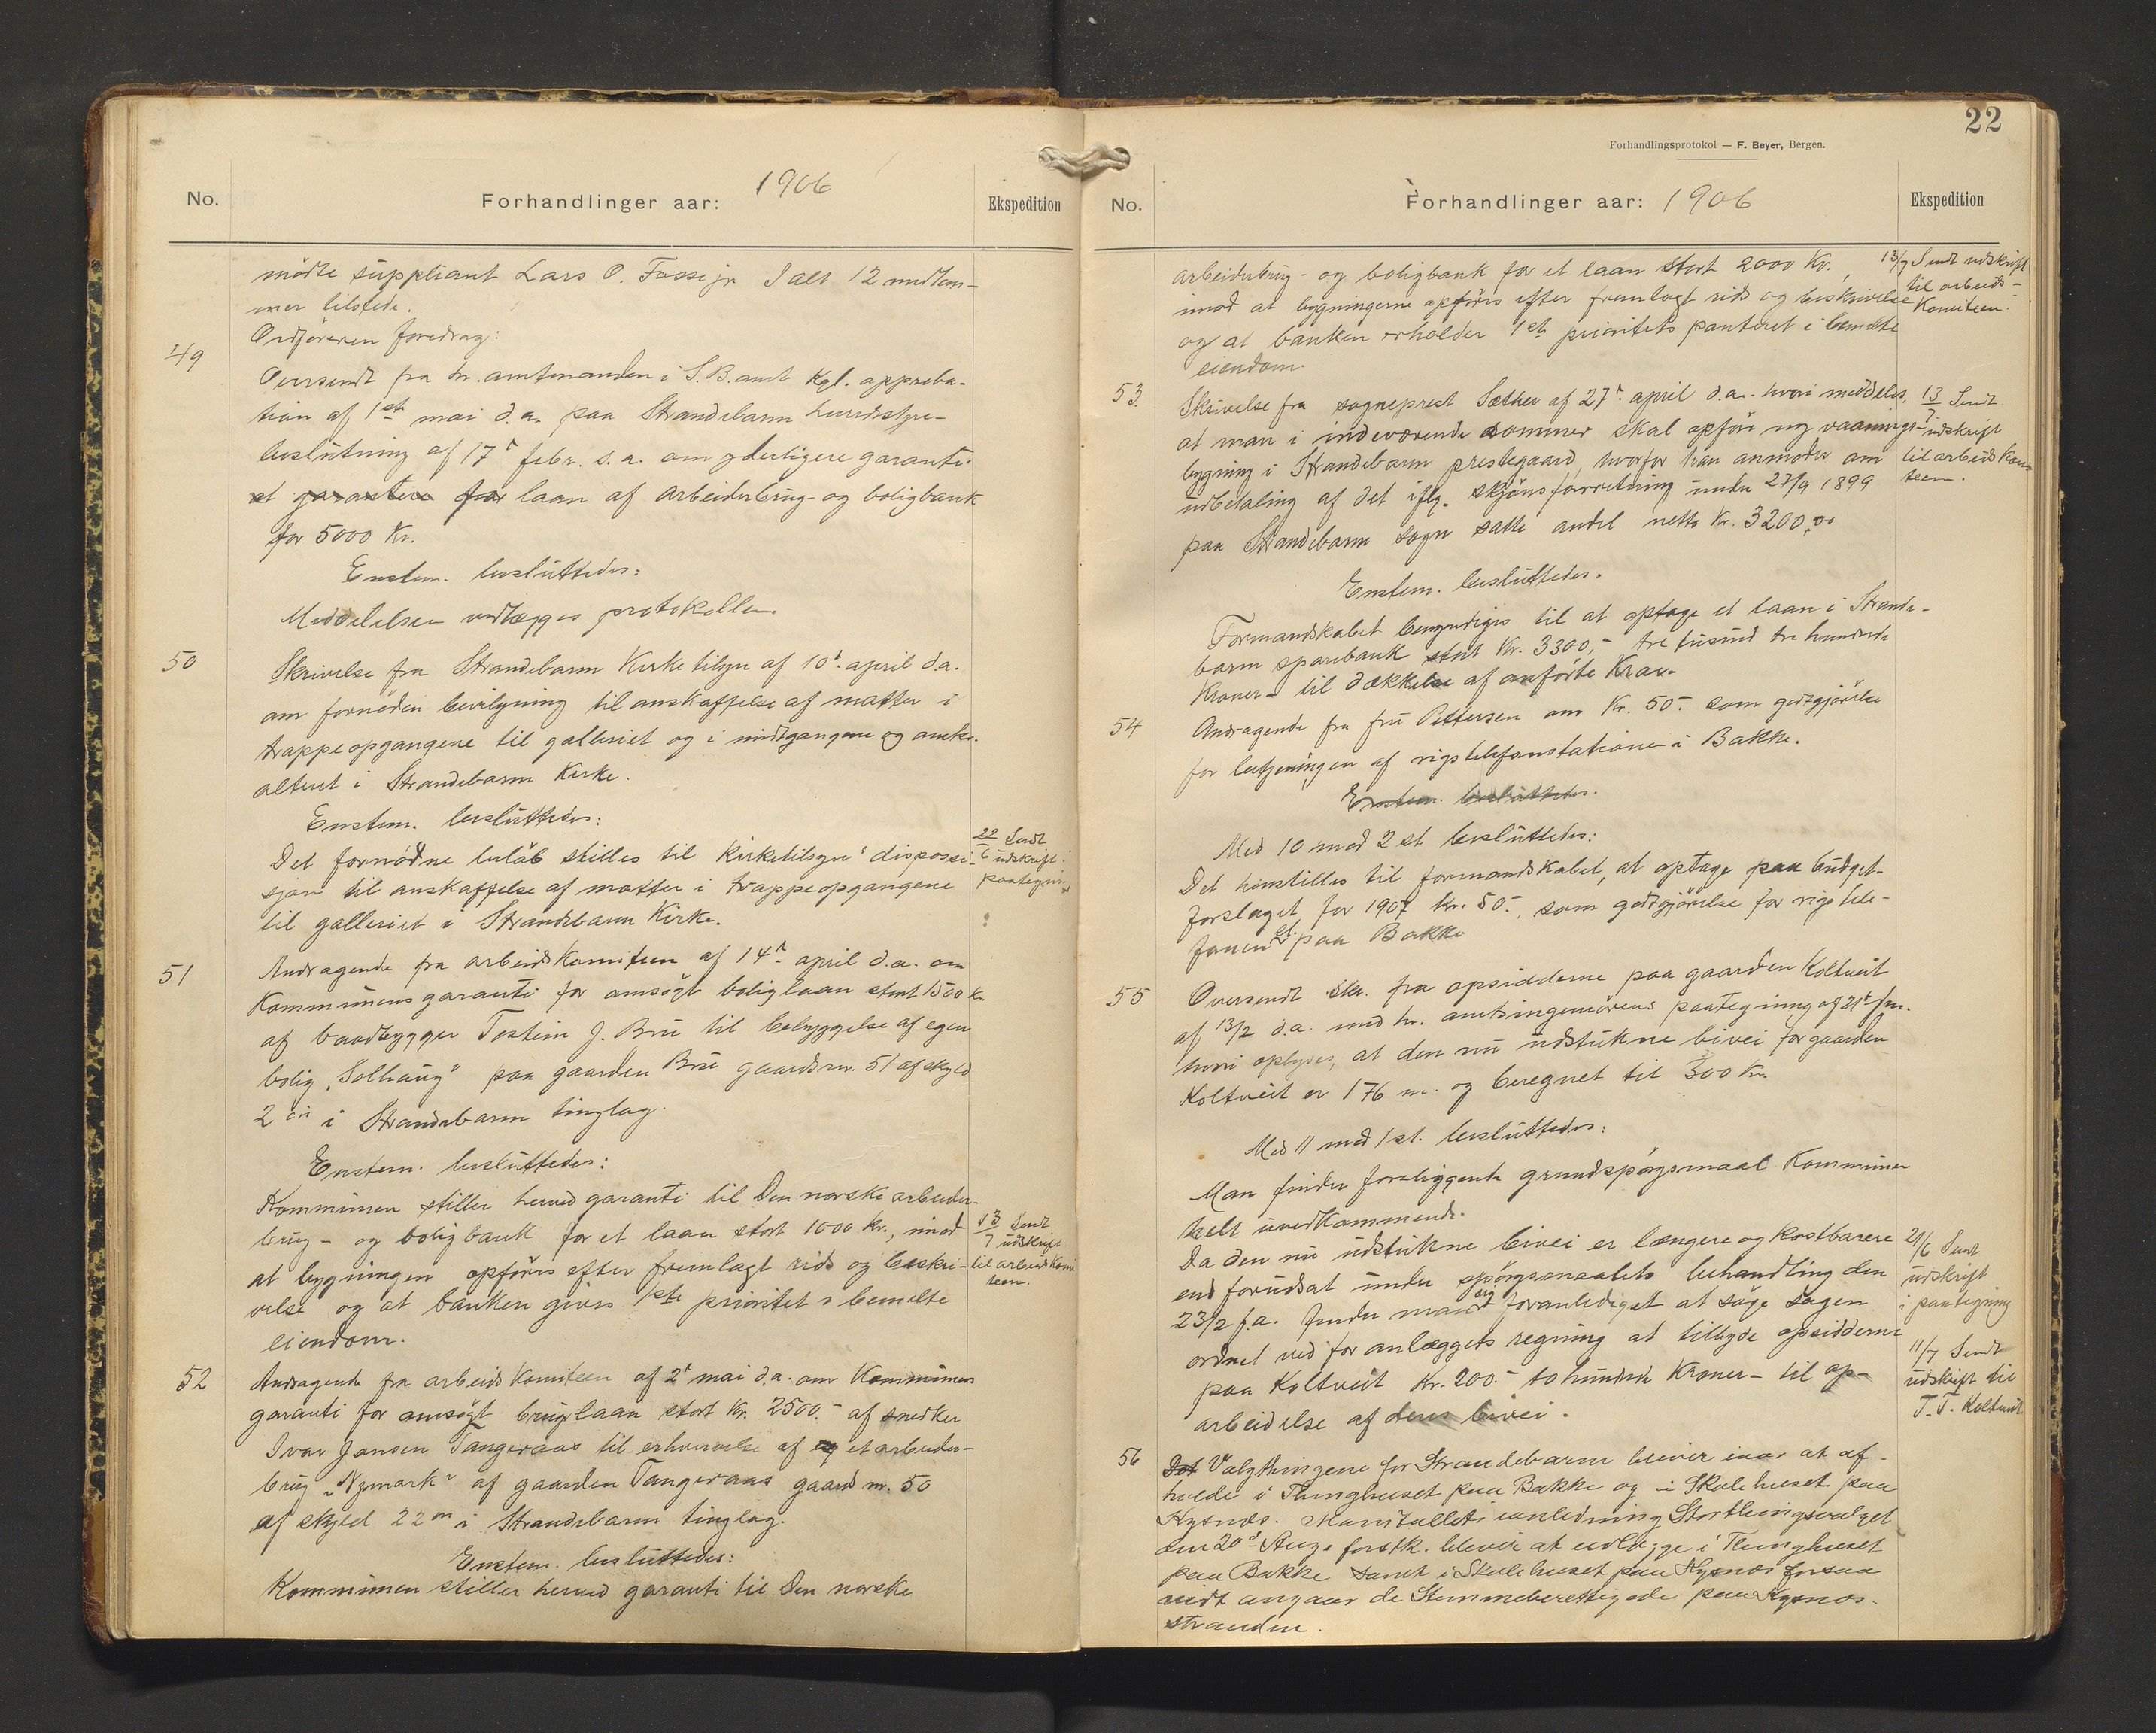 No.
Forhandlinger aar: 1906
Ekspedition
mödte suppliant Lars O. Fosse jr I alt 12 medlem-
mer tilstede.
Ordföreren foredrog:
49
Oversendt fra hr. amtmanden i S. B. amt Kgl. approba-
tion af 1ste mai d.a. paa Strandebarm herredsstyre-
beslutning af 17de febr. s.a. om yderligere garanti-
et garantere for laan af arbeiderbrug- og boligbank
for 5000 Kr.
Enstem. besluttedes:
Meddelelsen vedlægges protokollen.
50
Skrivelse fra Strandebarm Kirketilsyn af 10de april d.a.
om fornöden bevilgning til anskaffelse af matter i
trappeopgangene til galleriet og i midtgangene og omkr.
alteret i Strandebarm Kirke.
Enstem. besluttedes:
Det fornödne belöb stilles til Kirketilsyns disposi-
sjon til anskaffelse af matter i trappeopgangene
til galleriet i Strandebarm Kirke.
22/6 Sendt
udskrift i
paategning
51
Andragende fra arbeidskomiteen af 14de april d.a. om
Kommunens garanti for ansögt boliglaan stort 1500 Kr
af baadbygger Tostein J. Bru til bebyggelse af egen
bolig "Solhaug" paa gaarden Bru gaardsnr. 51 af skyld
2 öre i Strandebarm tinglag.
Enstem. besluttedes:
Kommunen stiller herved garanti til Den norske arbeider-
brug- og boligbank for et laan stort 1000 Kr., imod
at bygningen opföres efter fremlagt rids og beskri-
velse og at banken gives 1ste prioritet i bemeldte
eiendom.
13/7 Sendt
udskrift
til arbeidskomi
teen.
52
Andragende fra arbeidskomiteen af 2de mai d.a. om Kommunens
garanti for ansögt bruglaan stort Kr. 2500.- af snedker
Ivar Jansen Tangeraas til erhvervelse af eg et arbeider-
brug "Nymark" af gaarden Tangeraas gaards nr. 50
af skyld 22 öre i Strandebarm tinglag.
Enstem. besluttedes:
Kommunen stiller herved garanti til Den norske
22
Forhandlingsprotokol — F. Beyer, Bergen.
No.
Forhandlinger aar: 1906
Ekspedition
arbeiderbrug- og boligbank for et laan stort 2000 Kr.,
imod at bygningerne opföres efter fremlagt rids og beskrivelse
og at banken erholder 1ste prioritets panteret i bemeldte
eiendom.
13/7 Sendt udskrift
til arbeids-
Komiteen.
53.
Skrivelse fra sogneprest Sæther af 27de april d.a. hvori meddeles,
at man i indeværende sommer skal opföre ny vaanings-
bygning i Strandebarm prestegaard, hvorfor han anmoder om
udbetaling af det iflg. skjönsforretning under 27/9 1899
paa Strandebarm sogn satte andel netto Kr. 3200,00
13/7 Sendt
udskrift
til arbeidskomi
teen.
Enstem. besluttedes.
Formandskabet bemyndiges til at optage et laan i Strande-
barm sparebank stort Kr. 3300,- tre tusind tre hundrede
Kroner - til dækkelse af anförte Krav.
54
Andragende fra fru Pettersen om Kr. 50.- som godtgjörelse
for betjeningen af rigstelefonstationen i Bakke.
Enstem. besluttedes.
Med 10 mod 2 st. besluttedes:
Det henstilles til formandskabet, at optage paa budget-
forslaget for 1907 kr. 50.-, som godtgjörelse for rigstele-
fonen st. paa Bakke
55
Oversendt skr. fra opsidderne paa gaarden Koltveit
af 13/2 d.a. med hr. amtsingeniörens paategning af 21de fm.
hvori oplyses, at den nu udstukne bivei for gaarden
Koltveit er 176 m. og beregnet til 300 Kr.
Med 11 mod 1 st. besluttedes:
Man finder foreliggende grundspörgsmaal Kommunen
helt uvedkommende.
Da den nu udstukne bivei er længere og kostbarere
end forudsat under spörgsmaalets behandling den
23/2 f.a. finder man sig foranlediget at söge sagen
ordnet ved for anlæggets regning at tilbyde opsidderne
paa Koltveit Kr. 200.- to hundrede Kroner - til op-
arbeidelse af deres bivei.
21/6 Sendt
udskrift
i paategning
11/7 Sendt
udskrift til
T. T. Koltveit
56
Det Valgthingene for Strandebarm bliver iaar at af-
holde i Thinghuset paa Bakke og i Skolehuset paa
Kysnæs. Mantallet i anledning Storthingsvalget
den 20de Aug. förstk. bliver at udlægge i Thinghuset
paa Bakke samt i Skolehuset paa Kysnæs forsaa
vidt angaar de Stemmeberettigede paa Kysnæs-
stranden.